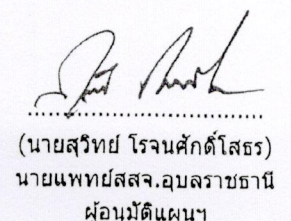 (นายสุวิทย์ โรจนศักดิ์โสธร)
นายแพทย์สสจ.อุบลราชธานี
ผู้อนุมัติแผนฯ